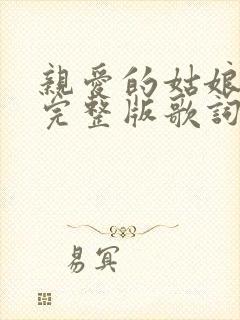 親愛的姑娘
完整版歌詞
易冥